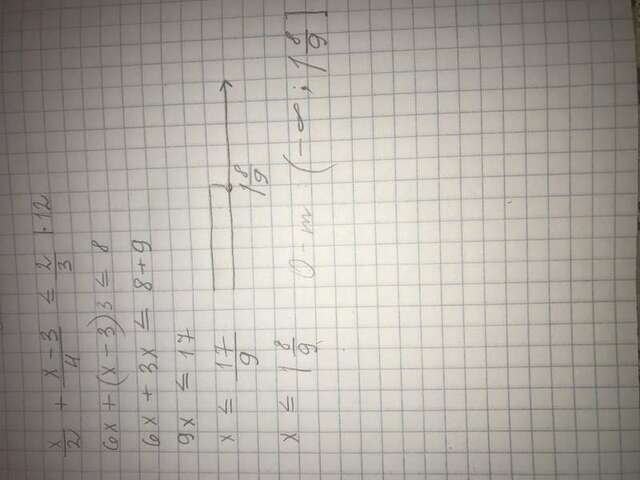 x/2 + (x-3)/4 ≤ 2/3 |·12
6x + (x-3)3 ≤ 8
6x + 3x ≤ 8+9
9x ≤ 17
x ≤ 17/9
1 8/9
x ≤ 1 8/9
O-m: (-∞; 1 8/9]